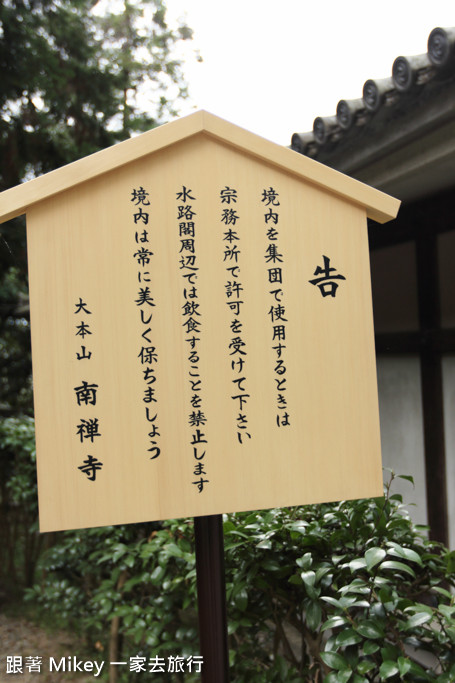 告
境内を集団で使用するときは
宗務本所で許可を受けて下さい
水路閣周辺では飲食することを禁止します
境内は常に美しく保ちましょう
大本山 南禅寺
跟著 Mikey 一家去旅行